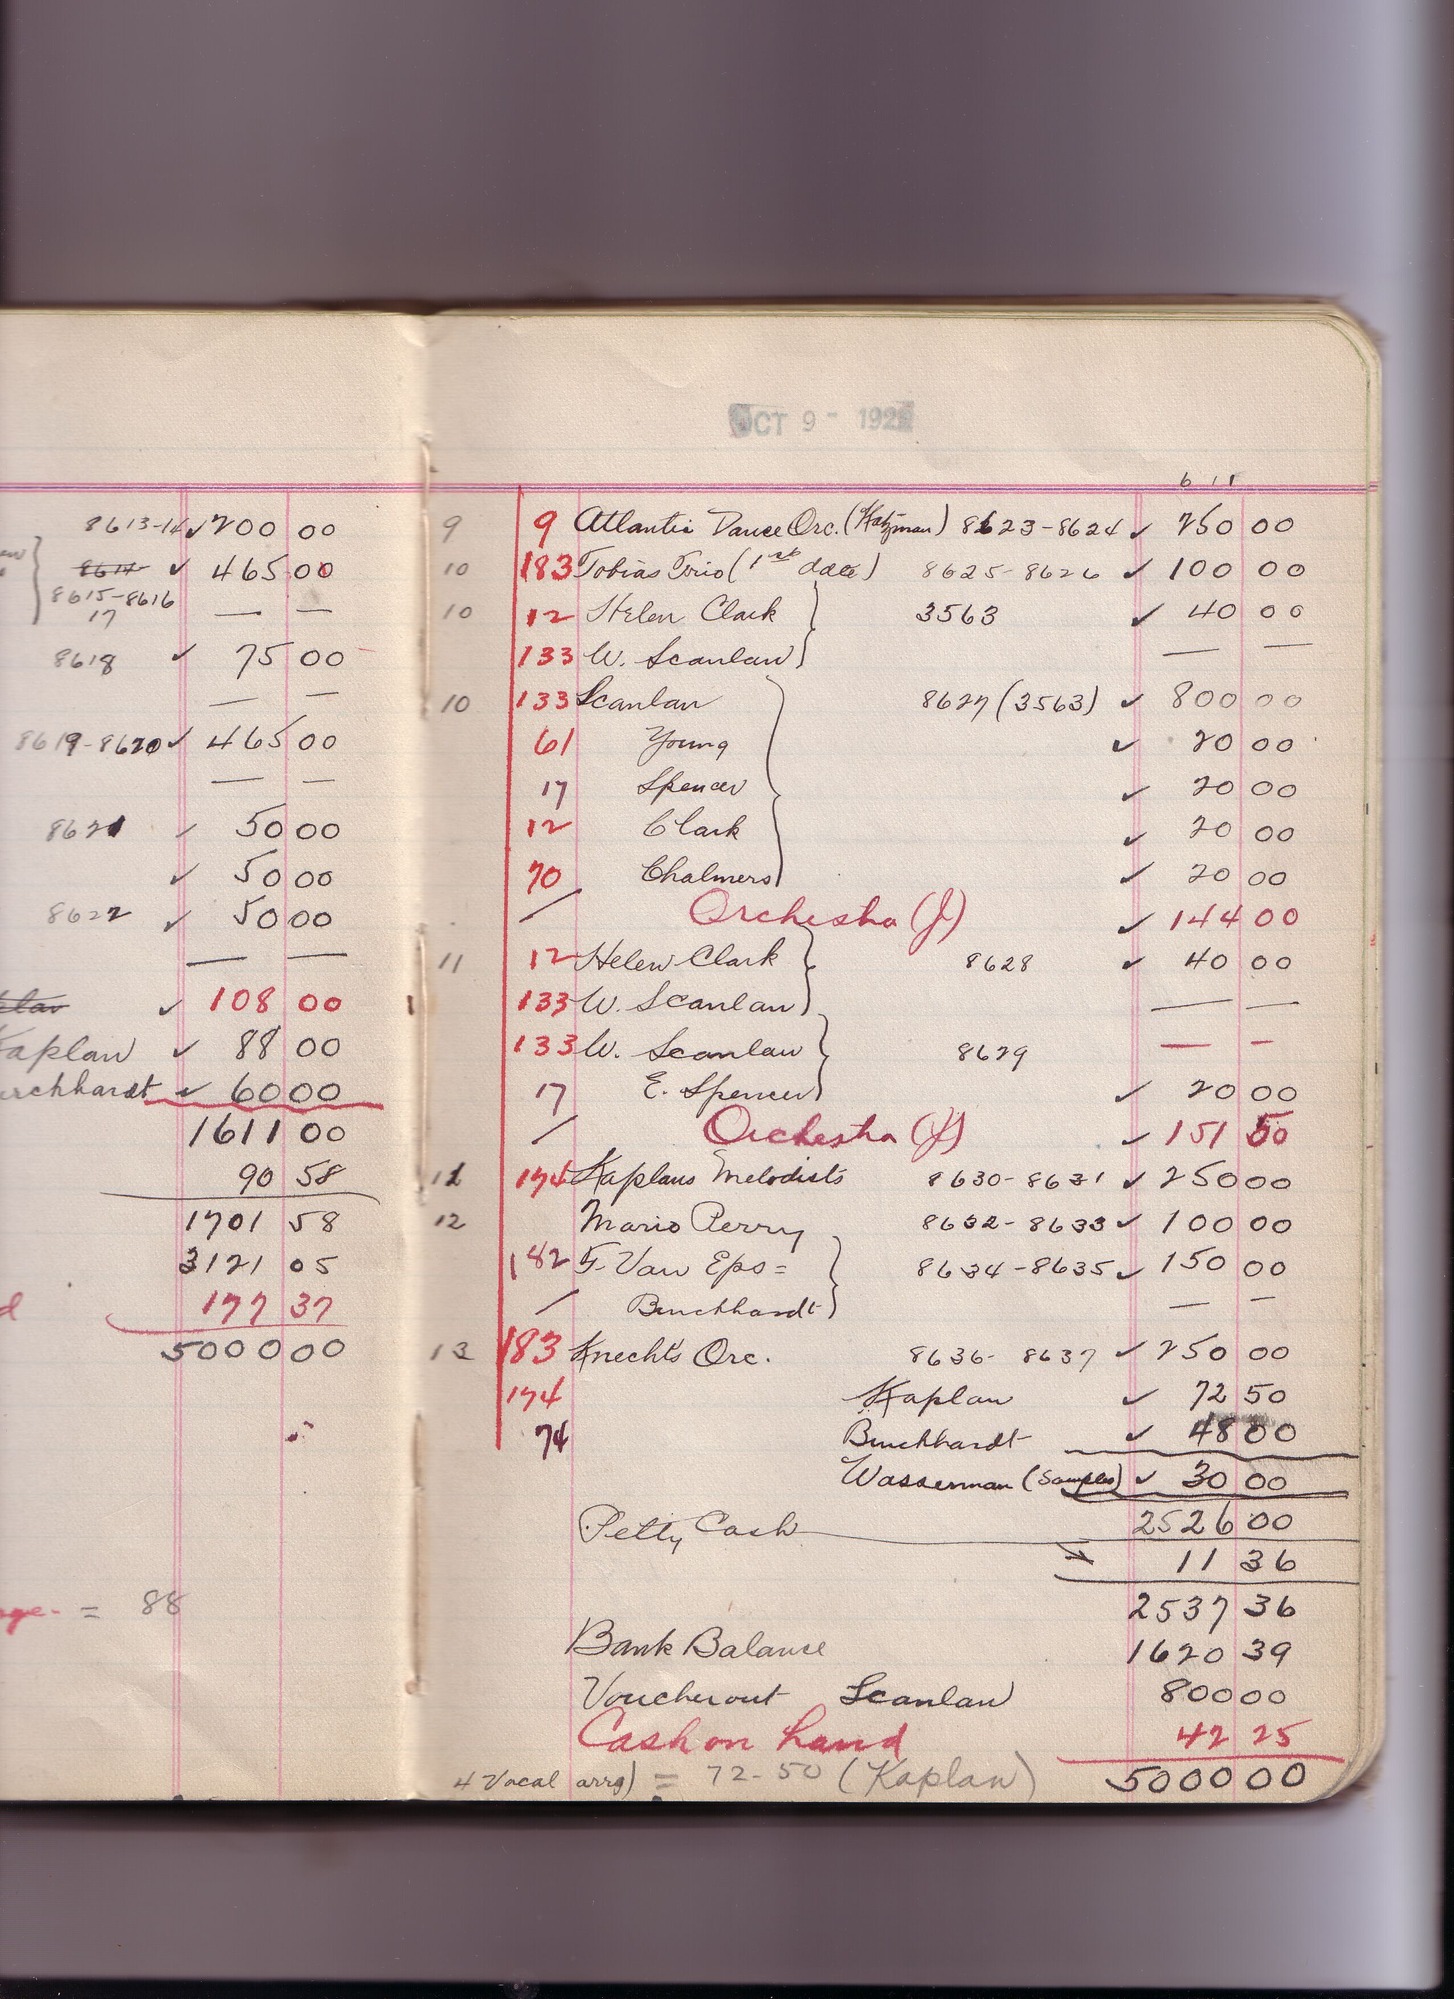 8613-14 ✓ 200 00
8614 ✓ 465 00
8615-8616
17 — —
8618 ✓ 75 00
— —
8619-8620 ✓ 465 00
— —
8621 ✓ 50 00
✓ 50 00
8622 ✓ 50 00
— —
✓ 108 00
Kaplan ✓ 88 00
✓ 60 00
1611 00
90 58
1701 58
3121 05
177 37
5000 00
= 88
OCT 9 - 192
6 11
9 9 Atlantic Dance Orc. (Katzman) 8623-8624 ✓ 250 00
10 183 Tobias Trio (1st date) 8625-8626 ✓ 100 00
10 12 Helen Clark 3563 ✓ 40 00
133 W. Scanlan — —
10 133 Scanlan 8627 (3563) ✓ 800 00
61 Young ✓ 20 00
17 Spencer ✓ 20 00
12 Clark ✓ 20 00
70 Chalmers ✓ 20 00
/ Orchestra (J) ✓ 144 00
11 12 Helen Clark 8628 ✓ 40 00
133 W. Scanlan — —
133 W. Scanlan 8629 — —
17 E. Spencer ✓ 20 00
/ Orchestra (J) ✓ 151 50
12 174 Kaplans Melodists 8630-8631 ✓ 250 00
12 Mario Perry 8632-8633 ✓ 100 00
182 F. Van Eps = 8634-8635 ✓ 150 00
/ Burckhardt — —
13 183 Knechts Orc. 8636-8637 ✓ 250 00
174 Kaplan ✓ 72 50
74 Burckhardt ✓ 48 00
Wasserman (Samples) ✓ 30 00
Petty Cash 2526 00
11 36
2537 36
Bank Balance 1620 39
Voucher out Scanlan 800 00
Cash on hand 42 25
4 Vocal arrg) = 72-50 (Kaplan) 5000 00